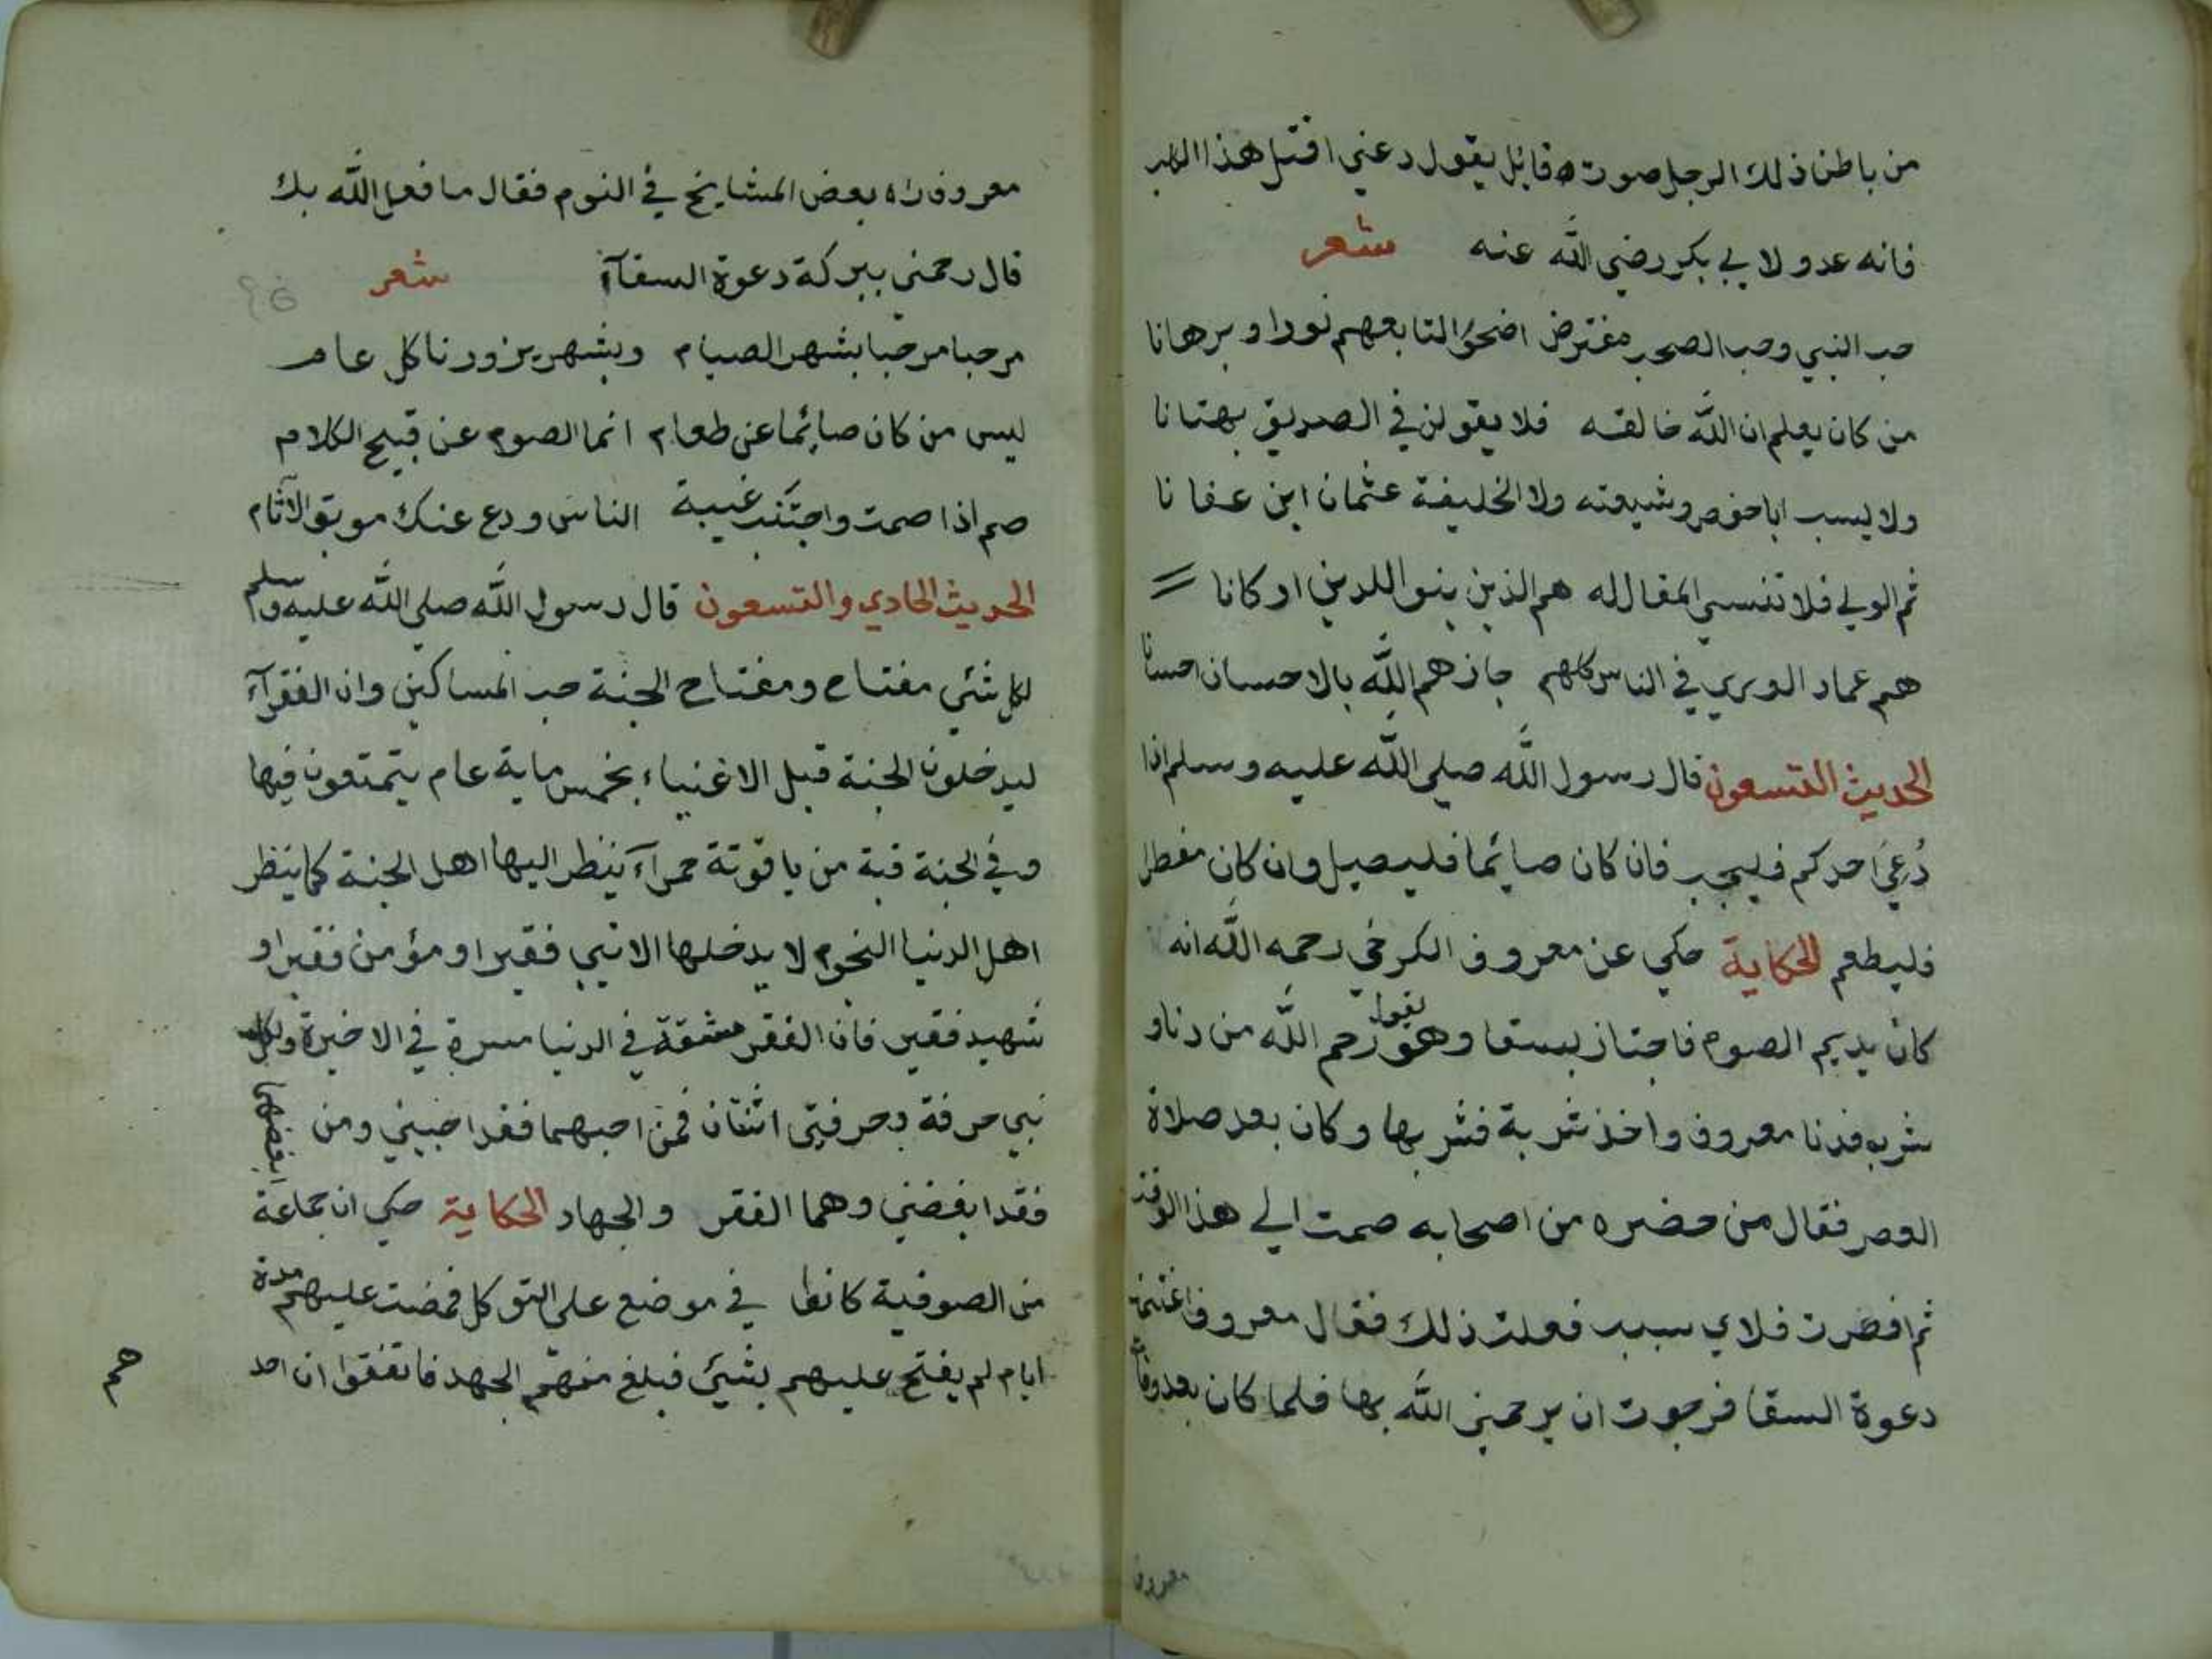 من باطن ذلك الرجل صوت قايل يقول دعني اقتل هذا الكلب
فانه عدو لابي بكر رضي الله عنه شعر
حب النبي وحب الصحب مفترض اضحوا لتابعهم نورا وبرهانا
من كان يعلم ان الله خالقه فلا يقولن في الصديق بهتانا
ولا يسب اباحفص وشيعته ولا الخليفة عثمان ابن عفانا
ثم الولي فلا تنسي المقال له هم الذين بنوا للدين اركانا
هم عماد الوري في الناس كلهم جازهم الله بالاحسان احسانا
الحديث التسعون قال رسول الله صلي الله عليه وسلم اذا
دُعِيَ احدكم فليجب فان كان صائما فليصيل وان كان مفطرا
فليطعم الحكاية حكي عن معروف الكرخي رحمه الله انه
كان يديم الصوم فاجتاز بسقا وهو يقول رحم الله من دنا و
شرب فدنا معروف واخذ شربة فشربها وكان بعد صلاة
العصر فقال من حضره من اصحابه صمت الي هذا الوقت
ثم افطرت فلاي سبب فعلت ذلك فقال معروف اغتنمت
دعوة السقا فرجوت ان يرحمني الله بها فلما كان بعد وفاة
معروف
معروف راه بعض المشايخ في النوم فقال ما فعل الله بك
قال رحمني ببركة دعوة السقآء شعر
مرحبا مرحبا بشهر الصيام وبشهر يزورنا كل عام
ليس من كان صائما عن طعام انما الصوم عن قبيح الكلام
صم اذا صمت واجتنب غيبة الناس ودع عنك موبق الآثام
الحديث الحادي والتسعون قال رسول الله صلي الله عليه وسلم
لكل شئي مفتاح ومفتاح الجنة حب المساكين وان الفقرآء
ليدخلون الجنة قبل الاغنياء بخمس ماية عام يتمتعون فيها
وفي الجنة قبة من ياقوتة حمرآء ينظر اليها اهل الجنة كما ينظر
اهل الدنيا النجوم لا يدخلها الا نبي فقير او مؤمن فقير او
شهيد فقير فان الفقر مشقة في الدنيا مسرة في الاخرة ولكل
نبي حرفة وحرفتي اثنتان فمن احبهما فقد احبني ومن ابغضهما
فقد ابغضني وهما الفقر والجهاد الحكاية حكي ان جماعة
من الصوفية كانوا في موضع علي التوكل فمضت عليهم مدة
ايام لم يفتح عليهم بشئي فبلغ منهم الجهد فاتفقوا ان احد
هم